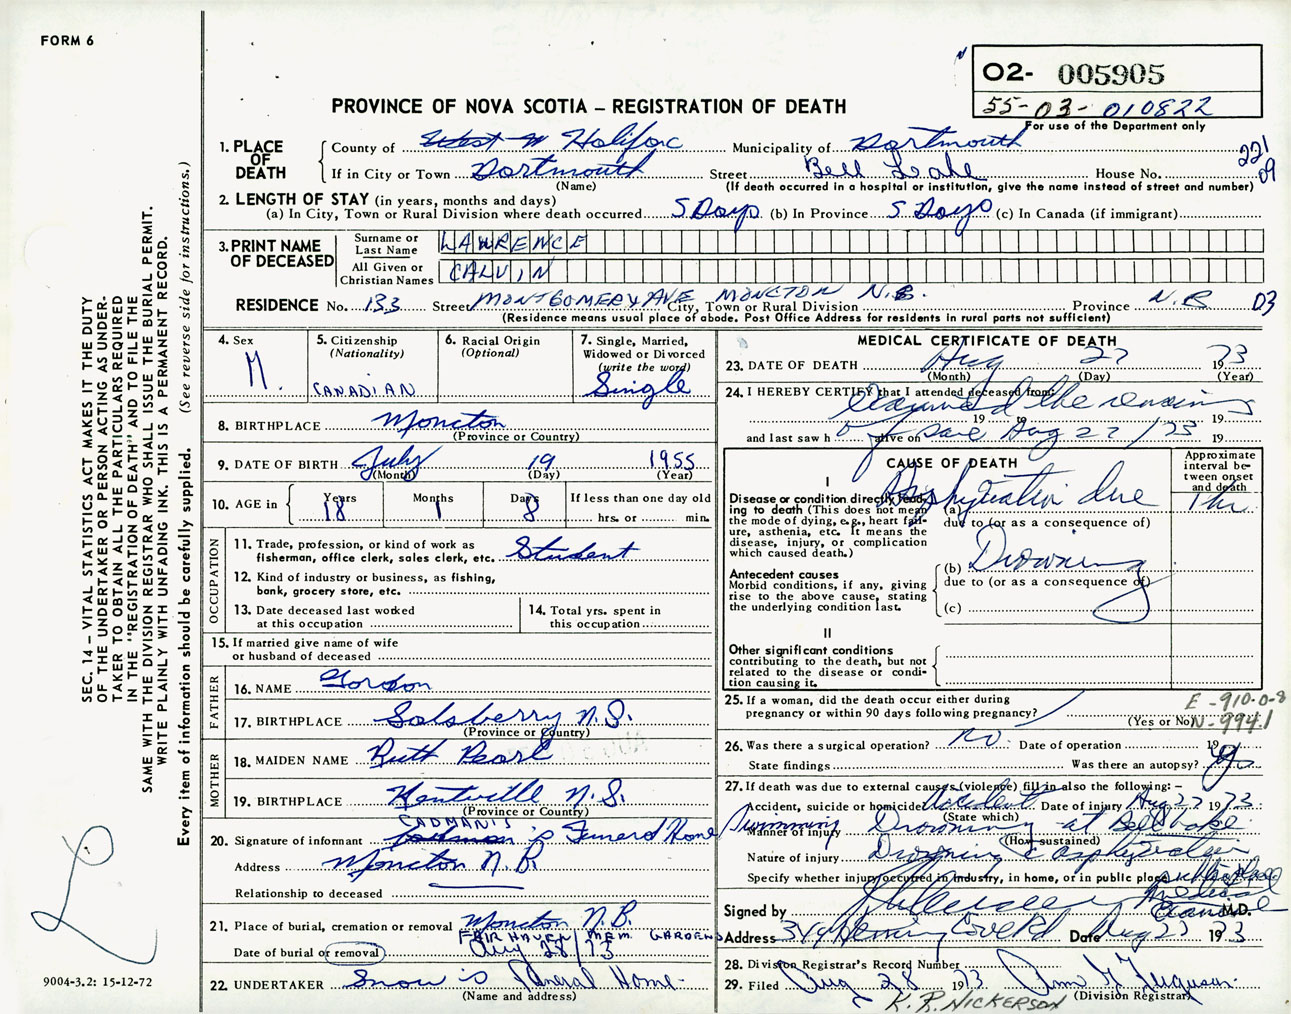 FORM 6
O2- 005905
55-03-010822
For use of the Department only
PROVINCE OF NOVA SCOTIA – REGISTRATION OF DEATH
221
09
1. PLACE OF DEATH
County of Halifax Municipality of Dartmouth
If in City or Town Dartmouth Street Bell Lake House No.
(Name) (If death occurred in a hospital or institution, give the name instead of street and number)
2. LENGTH OF STAY (in years, months and days)
(a) In City, Town or Rural Division where death occurred 5 Days (b) In Province 5 Days (c) In Canada (if immigrant)
3. PRINT NAME OF DECEASED
Surname or Last Name LAWRENCE
All Given or Christian Names CALVIN
RESIDENCE No. 133 Street MONTGOMERY AVE MONCTON N.B. City, Town or Rural Division Province N.B 03
(Residence means usual place of abode. Post Office Address for residents in rural parts not sufficient)
4. Sex M.
5. Citizenship (Nationality) CANADIAN
6. Racial Origin (Optional)
7. Single, Married, Widowed or Divorced (write the word) Single
8. BIRTHPLACE Moncton
(Province or Country)
9. DATE OF BIRTH July 19 1955
(Month) (Day) (Year)
10. AGE in Years 18 Months 1 Days 8 If less than one day old hrs. or min.
OCCUPATION
11. Trade, profession, or kind of work as fisherman, office clerk, sales clerk, etc. Student
12. Kind of industry or business, as fishing, bank, grocery store, etc.
13. Date deceased last worked at this occupation
14. Total yrs. spent in this occupation
15. If married give name of wife or husband of deceased
FATHER
16. NAME Gordon
17. BIRTHPLACE Salsberry N.S.
(Province or Country)
MOTHER
18. MAIDEN NAME Ruth Pearl
19. BIRTHPLACE Kentville N.S.
(Province or Country)
CADMAN'S
20. Signature of informant 's Funeral Home
Address Moncton N.B.
Relationship to deceased
21. Place of burial, cremation or removal Moncton N.B.
FAIR HAVEN MEM. GARDENS
Date of burial or removal Aug 28/73
22. UNDERTAKER Snow's Funeral Home
(Name and address)
MEDICAL CERTIFICATE OF DEATH
23. DATE OF DEATH Aug 27 1973
(Month) (Day) (Year)
24. I HEREBY CERTIFY that I attended deceased from 19
Examined the remains
and last saw h alive on Aug 27/73 19
CAUSE OF DEATH
Approximate interval between onset and death
I
Disease or condition directly leading to death (This does not mean the mode of dying, e.g., heart failure, asthenia, etc. It means the disease, injury, or complication which caused death.)
(a) Asphyxiation due 1 hr
due to (or as a consequence of)
Antecedent causes
Morbid conditions, if any, giving rise to the above cause, stating the underlying condition last.
(b) Drowning
due to (or as a consequence of)
(c)
II
Other significant conditions
contributing to the death, but not related to the disease or condition causing it.
25. If a woman, did the death occur either during pregnancy or within 90 days following pregnancy?
(Yes or No)
E-910-0-8
N-994.1
26. Was there a surgical operation? no Date of operation 19
State findings Was there an autopsy?
27. If death was due to external causes (violence) fill in also the following: –
Accident, suicide or homicide Accident Date of injury Aug 27 1973
(State which)
Swimming
Manner of injury Drowning at Bell Lake
(How sustained)
Nature of injury Drowning & asphyxiation
Specify whether injury occurred in industry, in home, or in public place
Signed by M.D.
Medical Examiner
Address Herring Cove Rd Date Aug 27 1973
28. Division Registrar's Record Number
29. Filed Aug 28 1973 Ferguson
(Division Registrar)
K. R. NICKERSON
SEC. 14 – VITAL STATISTICS ACT MAKES IT THE DUTY
OF THE UNDERTAKER OR PERSON ACTING AS UNDER-
TAKER TO OBTAIN ALL THE PARTICULARS REQUIRED
IN THE "REGISTRATION OF DEATH" AND TO FILE THE
SAME WITH THE DIVISION REGISTRAR WHO SHALL ISSUE THE BURIAL PERMIT.
WRITE PLAINLY WITH UNFADING INK. THIS IS A PERMANENT RECORD.
Every item of information should be carefully supplied. (See reverse side for instructions.)
9004-3.2: 15-12-72